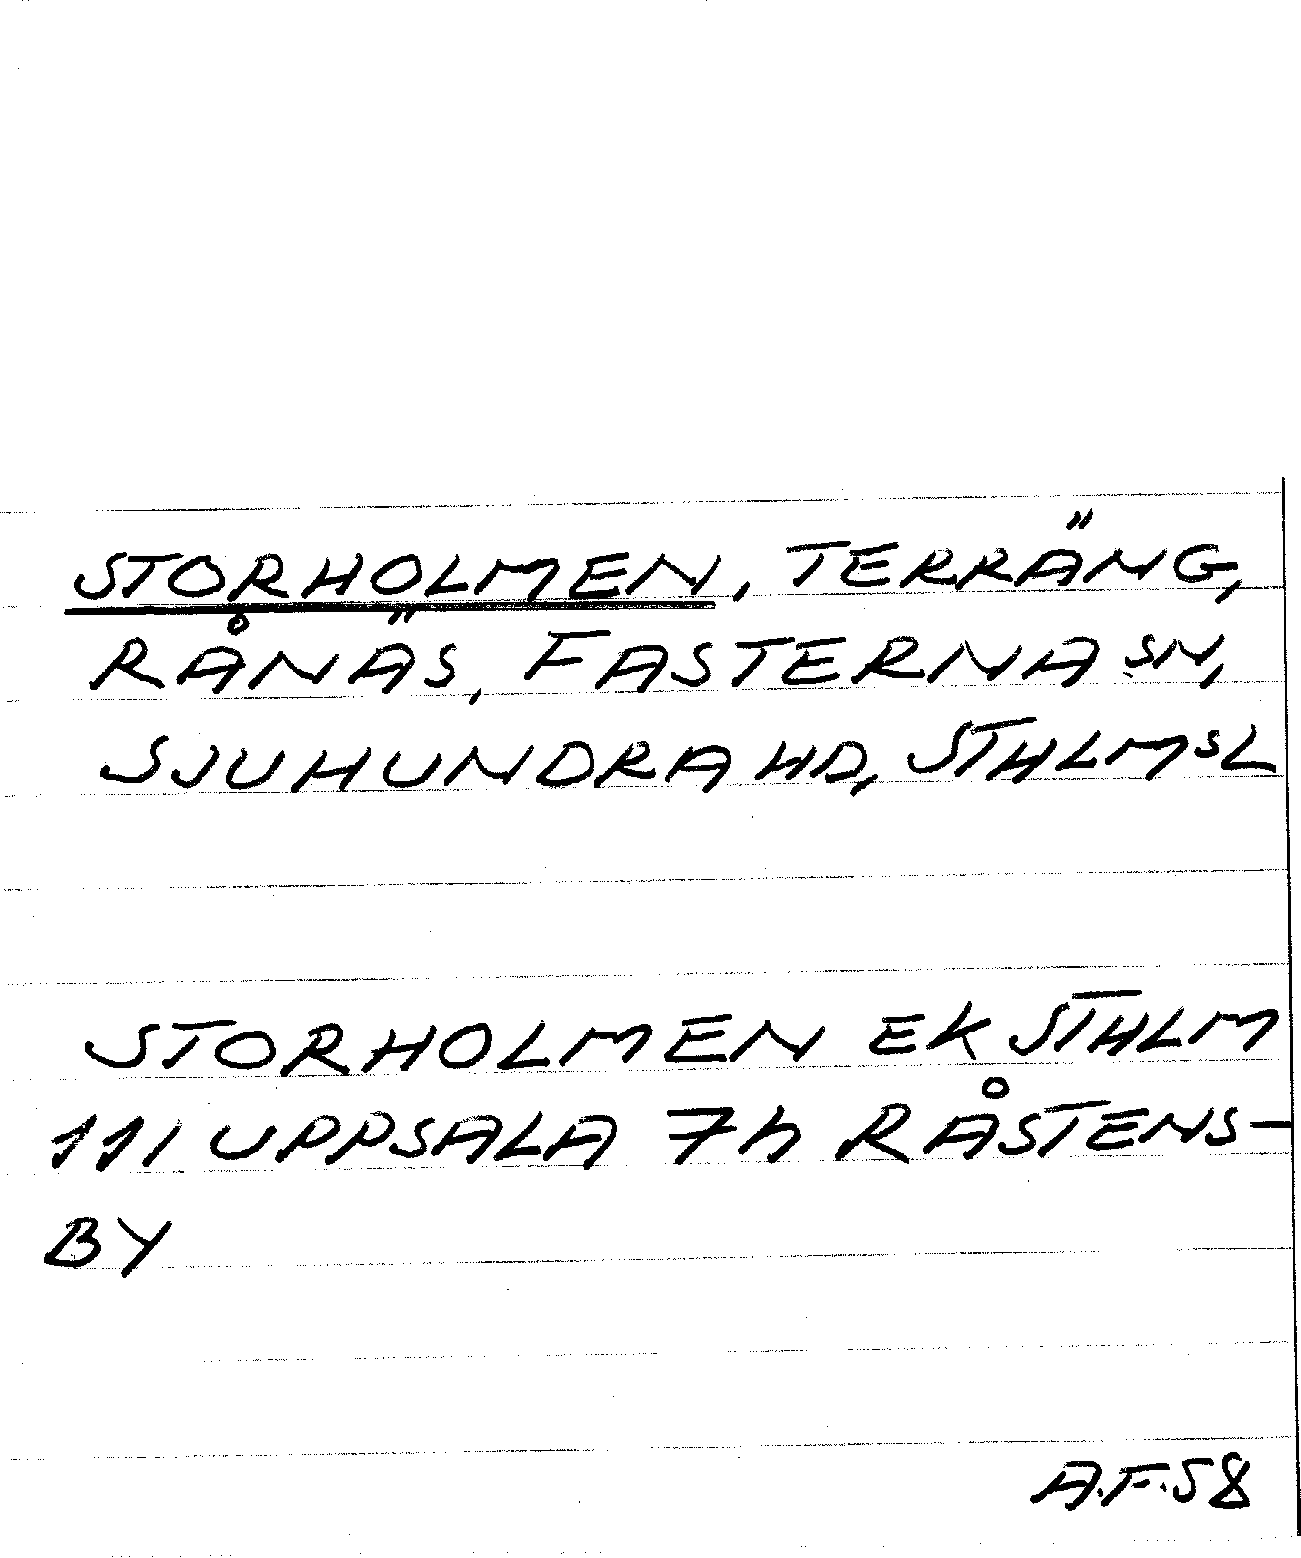 STORHOLMEN, TERRÄNG,
RÅNÄS, FASTERNA SN,
SJUHUNDRA HD, STHLMSL
STORHOLMEN EK STHLM
111 UPPSALA 7h RÅSTENS-
BY
A.F.58